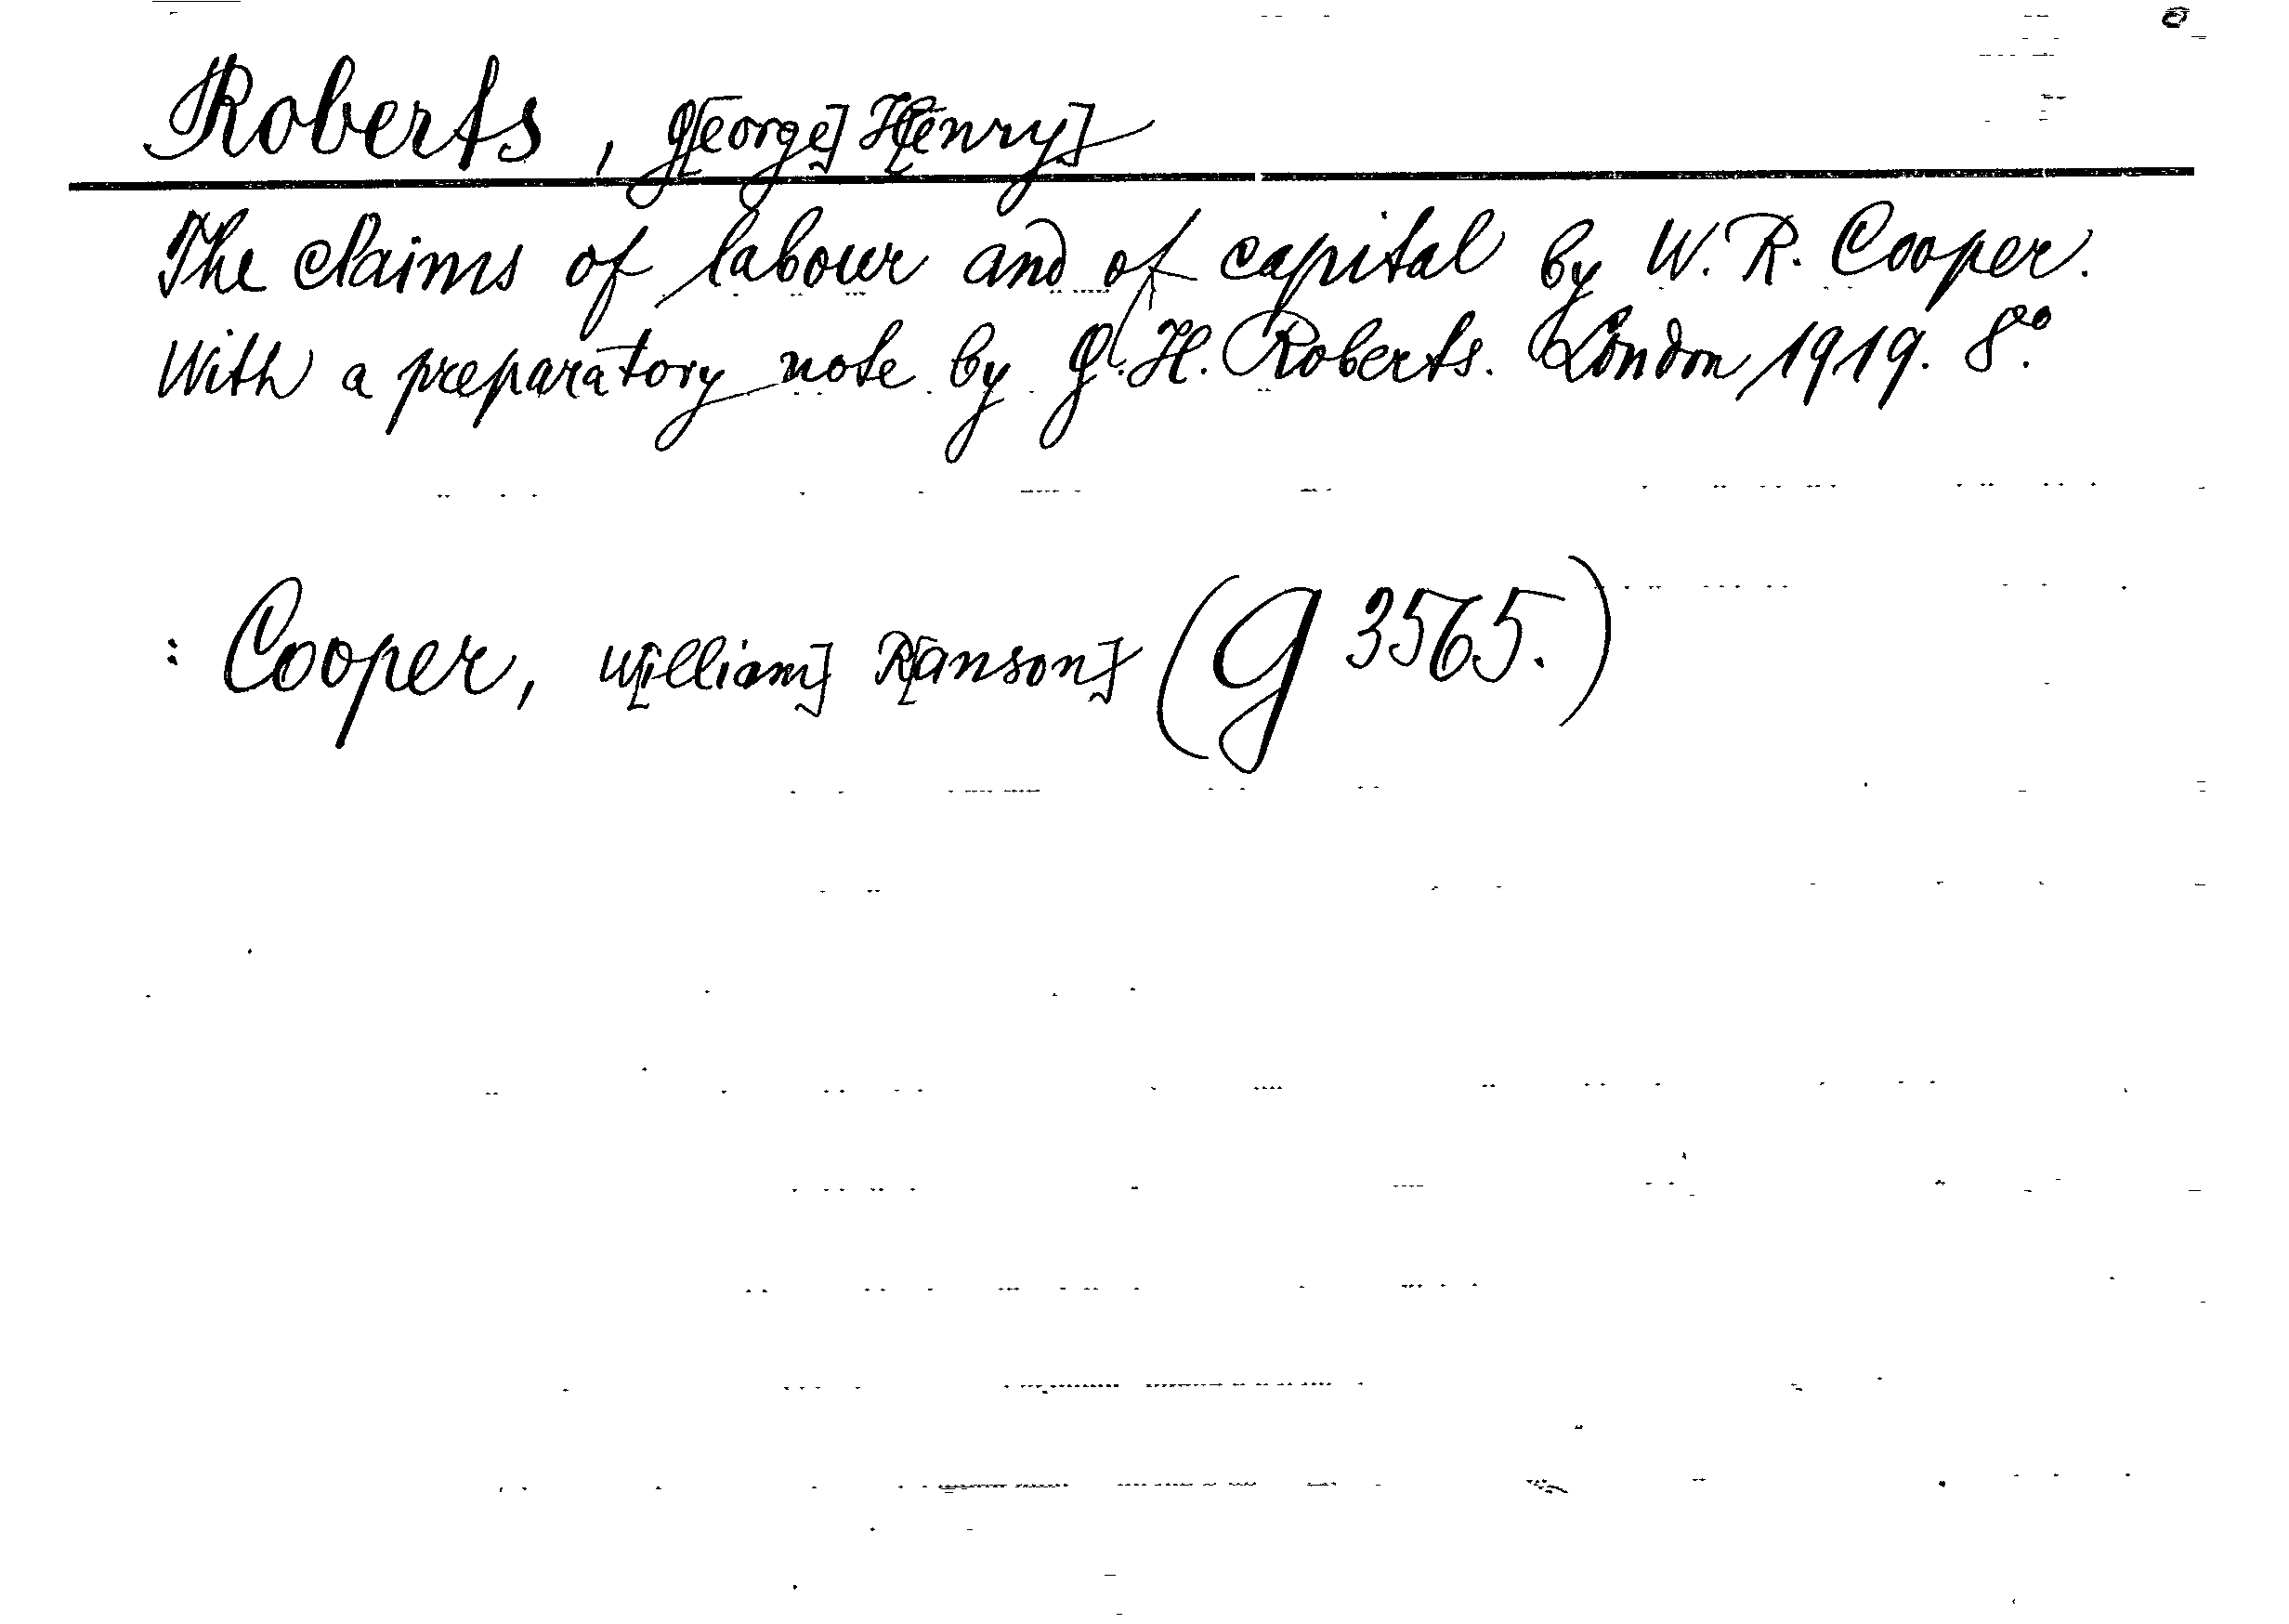 Roberts, G[eorge] H[enry]
The claims of labour and of capital by W. R. Cooper.
With a preparatory note by G. H. Roberts. London, 1919. 8.°
: Cooper, W[illiam] R[anson] (G 3565.)